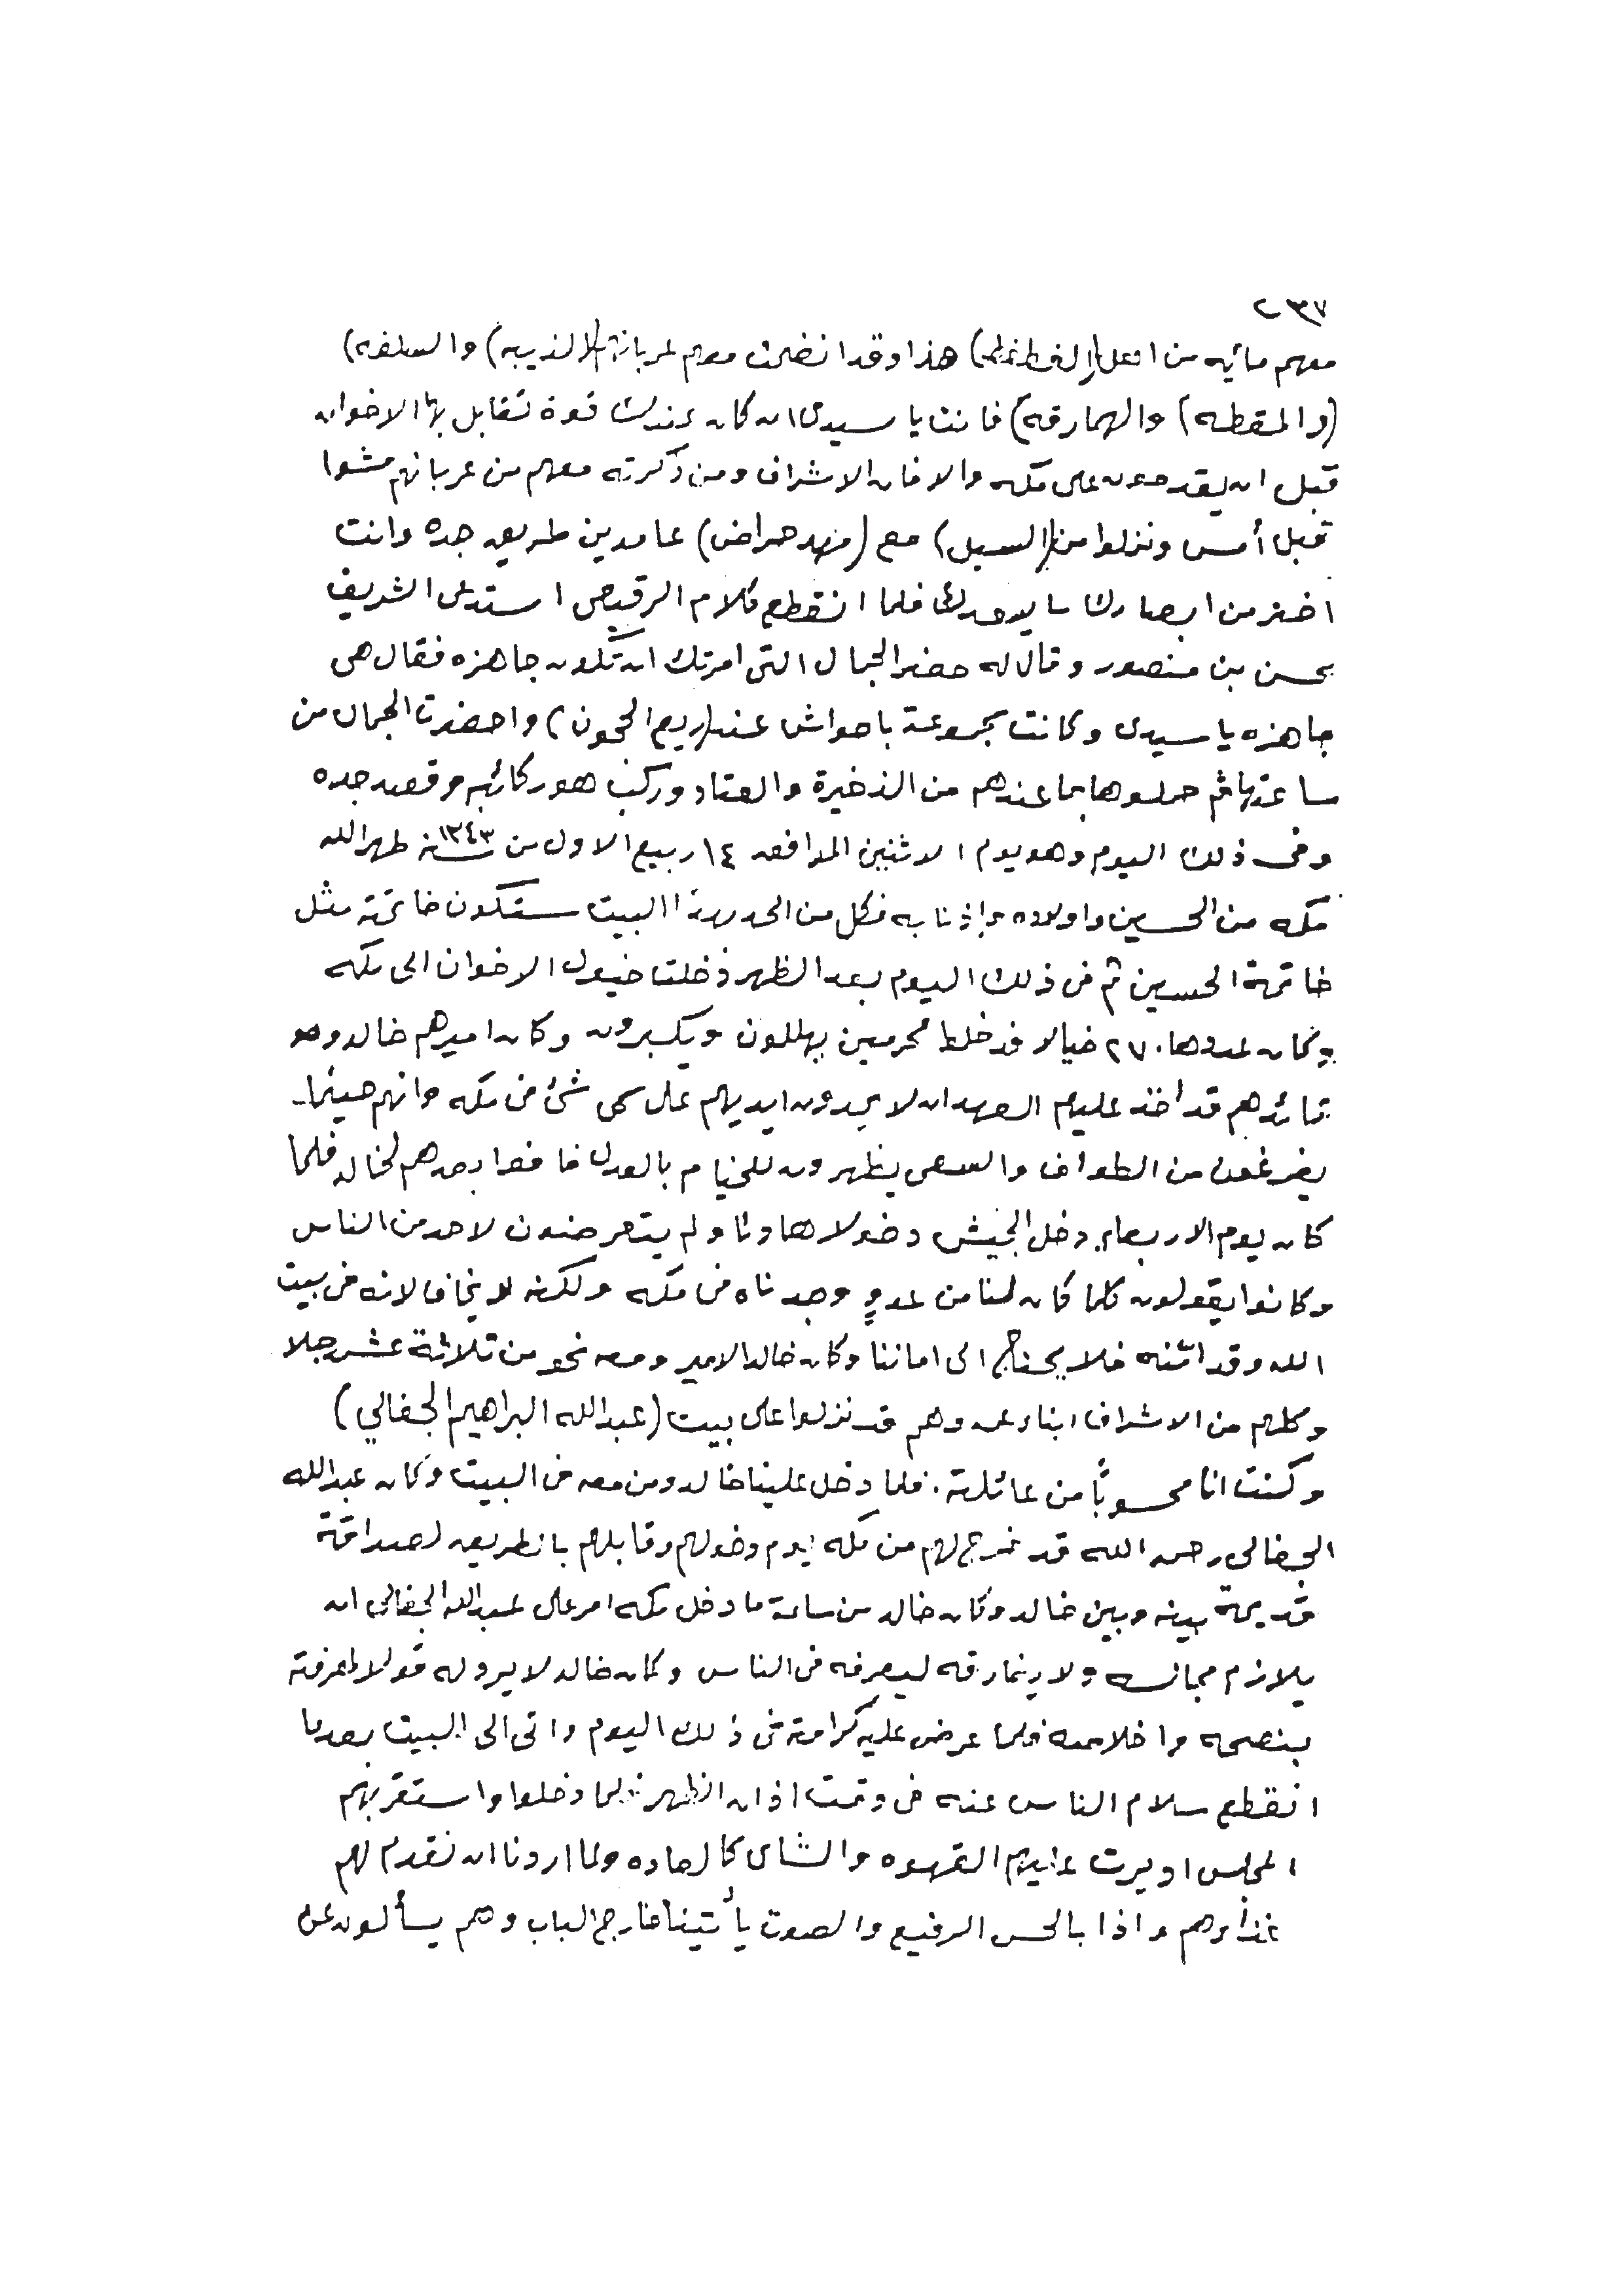 ٢٣٧
معهم مائيه من اهل (الغطغط) هذا وقد انضمت معهم عربانة (الذيبه) والسلفه)
(والمقطه) والهمارقه) فانت يا سيدى ان كان عندك قوة تقابل بها الاخوان
قبل ان يقدمون على مكه والا فان الاشراف ومن ذكرته معهم من عربانهم مشوا
قبل أمس ونزلوا من (السيل) مع (مهد حراض) عامدين طريق جده وانت
اختر من ابصارك ما يوجد لك فلما انقطع كلام الرقيص استدعى الشريف
محسن بن منصور وقال له حضر الجمال التى امرتك ان تكون جاهزه فقال هى
جاهزه يا سيدى وكانت مجموعة باحواش عند (ريع الحجون) واحضرت الجمال من
ساعتها ثم حملوها بما عندهم من الذخيرة والعتاد وركب هو ركائبه وقصد جده
وفى ذلك اليوم وهو يوم الاثنين الموافق ١٤ ربيع الاول من سنة ١٣٤٣ طهر الله
مكه من الحسين واولاده واذنابه فكل من الحد بهذا البيت ستكون خاتمة مثل
خاتمة الحسين ثم فى ذلك اليوم بعد الظهر دخلت خيول الاخوان الى مكه
وكان عددها ٢٧٠ خيالا قد خلوا محرمين يهللون ويكبرون وكان اميرهم خالد وهو
قائدهم قد أخذ عليهم العهد ان لا يمدون ايديهم على كل شئ فى مكه وانهم حينما
يفرغون من الطواف والسعى يظهرون للخيام بالعدل فافوا بعهدهم لخالد فلما
كان يوم الاربعاء دخل الجيش دخولا هادئا ولم يتعرضون لاحد من الناس
وكانوا يقولون كلما كان لنا من عدوٍ وجدناه فى مكه ولكنه لا يخاف لانه فى بيت
الله وقد امّنه فلا يحتاج الى اماننا وكان خالد الامير ومعه نحو من ثلاثة عشر رجلا
وكلهم من الاشراف ابناء عمه وهم قد نزلوا على بيت (عبدالله البراهيم الجفالي)
وكنت انا محسوباً من عائلته. فلما دخل علينا خالد ومن معه فى البيت وكان عبدالله
الجفالى رحمه الله قد خرج لهم من مكه يوم دخولهم وقابلهم بالطريق لصداقة
قديمة بينه وبين خالد وكان خالد من ساعة ما دخل مكه امر على عبدالله الجفالى ان
يلازم مجالسه ولا يفارقه ليعرفه فى الناس وكان خالد لا يرد له قولا لمعرفته
بنصحه واخلاصه فلما عرض عليه كرامة فى ذلك اليوم واتى الى البيت بعدما
انقطع سلام الناس عنه فى وقت اذان الظهر فلما دخلوا واستقر بهم
المجلس اديرت عليهم القهوه والشاى كالعاده ولما اردنا ان نقدم لهم
غذاؤهم واذا بالحس الرفيع والصوت يأتينا خارج الباب وهم يسألون عن